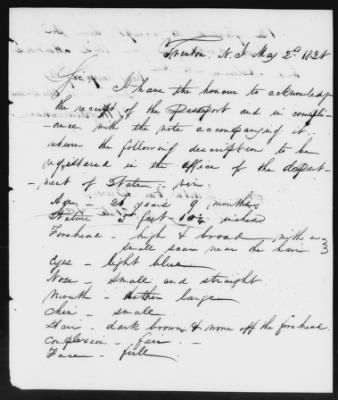 Trenton, N.J. May 2d 182
Sir,
I have the honour to acknowledge
the receipt of the Passport and in compli-
ance with the note accompanying it,
return the following description to be
registered in the office of the depart-
ment of State; viz
Age 26 years 9 months
Stature 5 feet 10½ inches
Forehead - high & broad with a
small scar near the hair
Eyes - light blue
Nose - small and straight
Mouth - rather large
Chin - small
Hair - dark brown & worn off the forehead
Complexion - fair -
Face - full